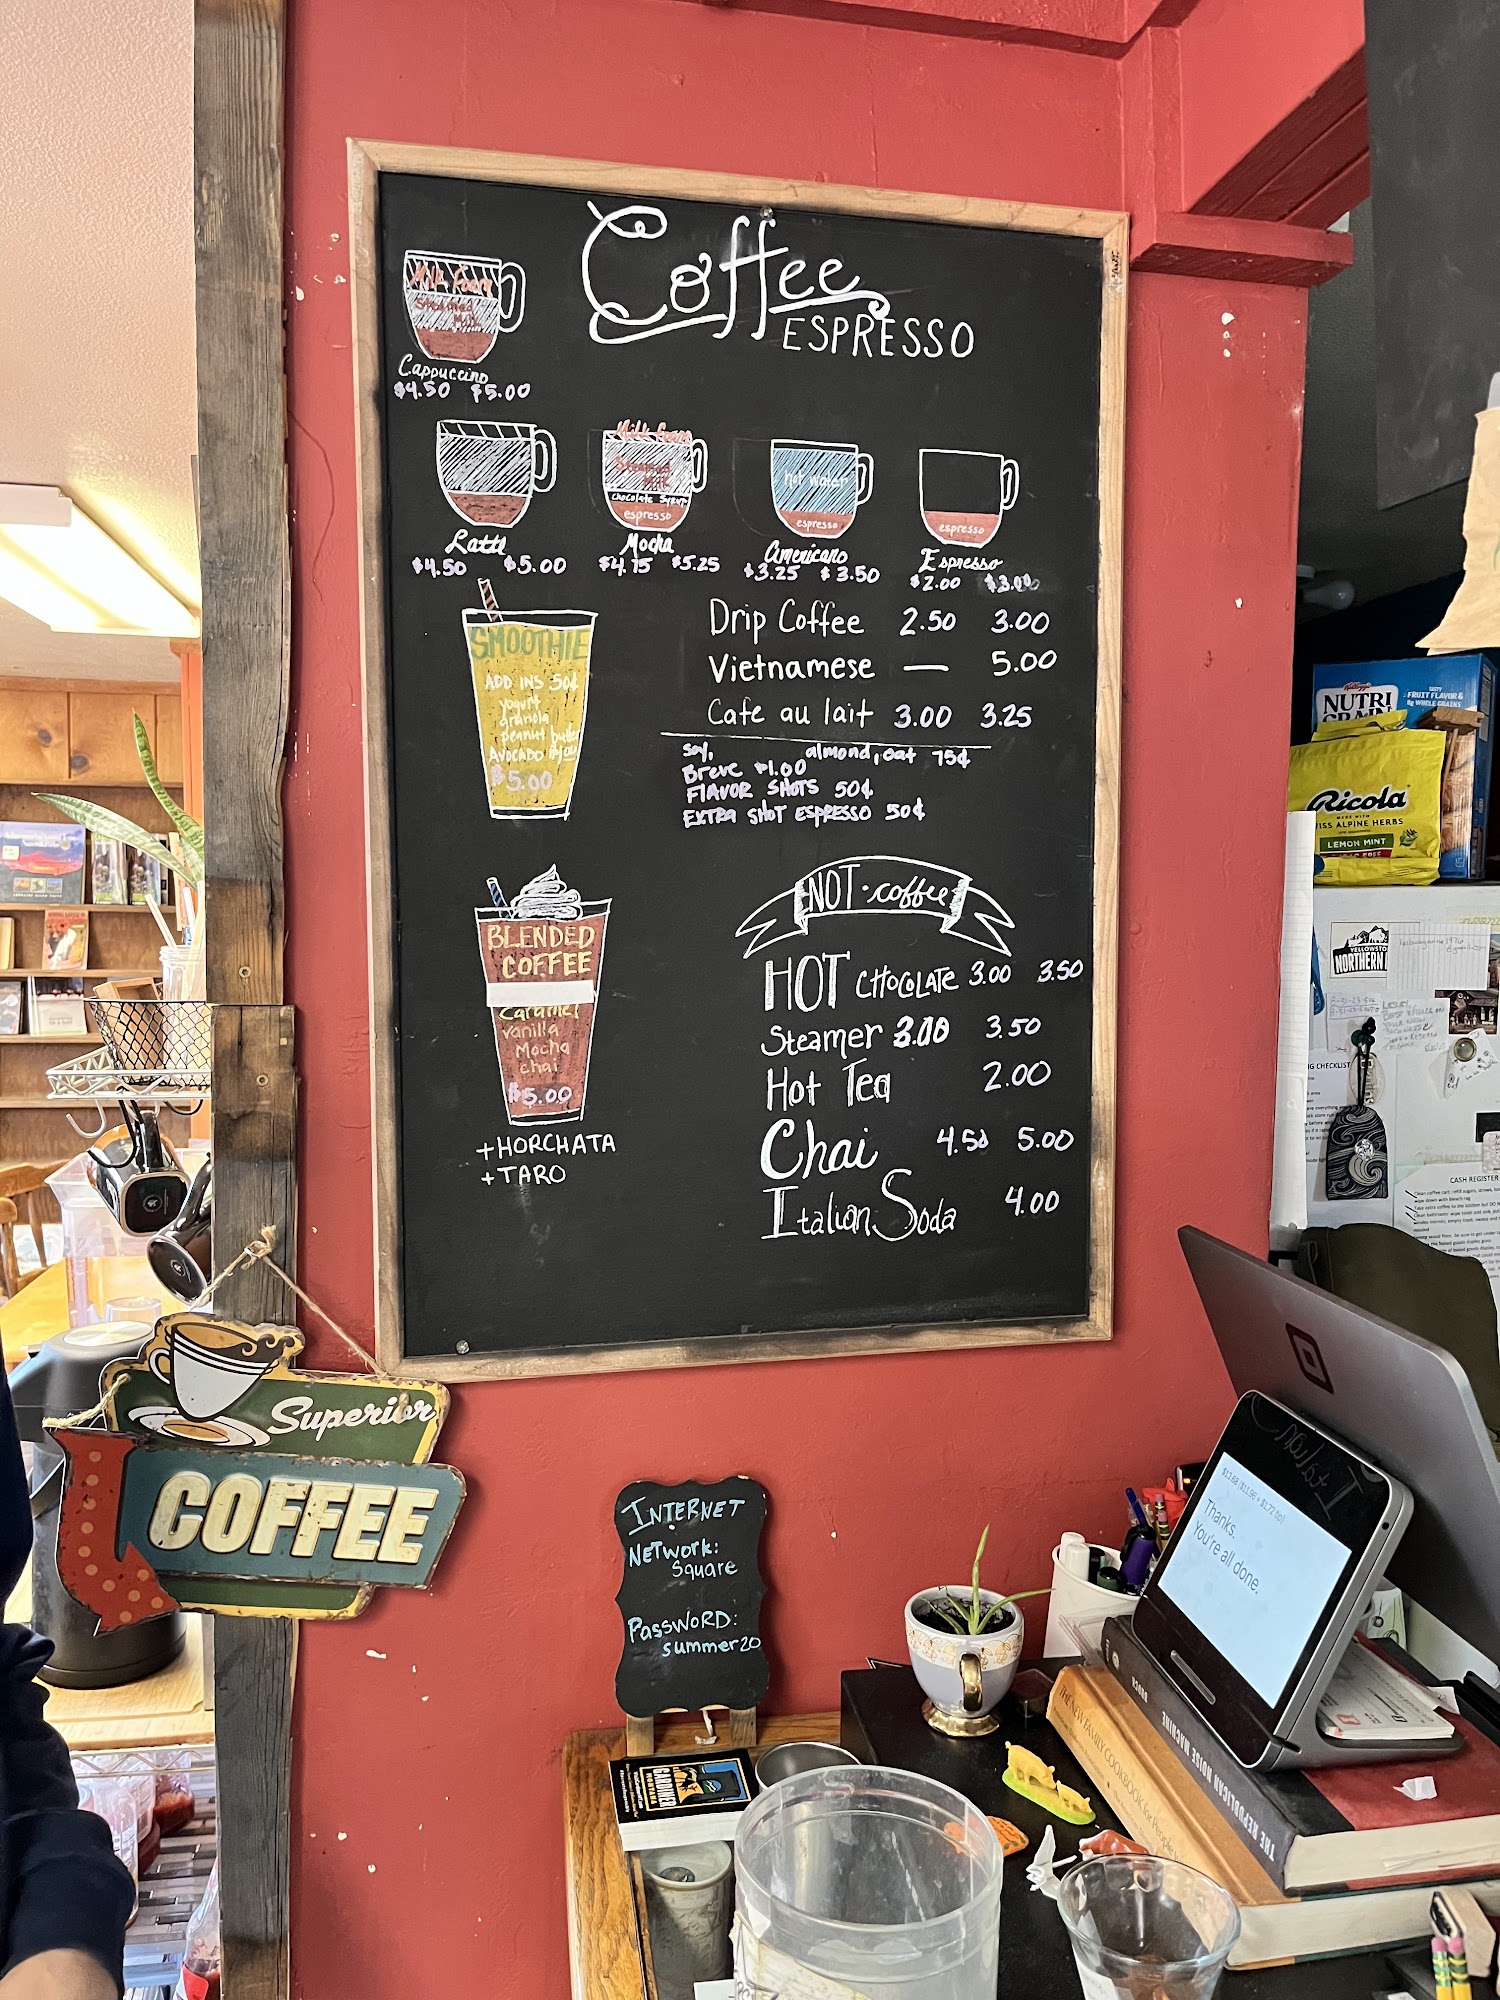 Coffee
ESPRESSO
Milk Foam
Steamed
Milk
Cappuccino
$4.50 $5.00
Latte
$4.50 $5.00
Milk foam
Steamed
Milk
chocolate syrup
espresso
Mocha
$4.75 $5.25
Hot water
espresso
Americano
$3.25 $3.50
espresso
Espresso
$2.00 $3.00
SMOOTHIE
ADD INS 50¢
yogurt
granola
peanut butter
AVOCADO
$5.00
Drip Coffee 2.50 3.00
Vietnamese — 5.00
Cafe au lait 3.00 3.25
soy, almond, oat 75¢
Breve $1.00
FLAVOR SHOTS 50¢
EXTRA SHOT ESPRESSO 50¢
BLENDED
COFFEE
Caramel
vanilla
Mocha
chai
$5.00
+HORCHATA
+TARO
NOT·coffee
HOT CHOCOLATE 3.00 3.50
Steamer 3.00 3.50
Hot Tea 2.00
Chai 4.50 5.00
Italian Soda 4.00
Superior
COFFEE
INTERNET
NETWORK:
Square
PASSWORD:
summer20
Kellogg's
NUTRI
GRAIN
FRUIT FLAVOR &
8g WHOLE GRAINS
Ricola
MADE WITH
SWISS ALPINE HERBS
LEMON MINT
YELLOWSTO
NORTHERN
NG CHECKLIST
CASH REGISTER
$13.68 ($11.96 + $1.72 tip)
Thanks.
You're all done.
GARDINER
MONTANA
THE NEW FAMILY COOKBOOK for People
BROCK THE REPUBLICAN NOISE MACHINE